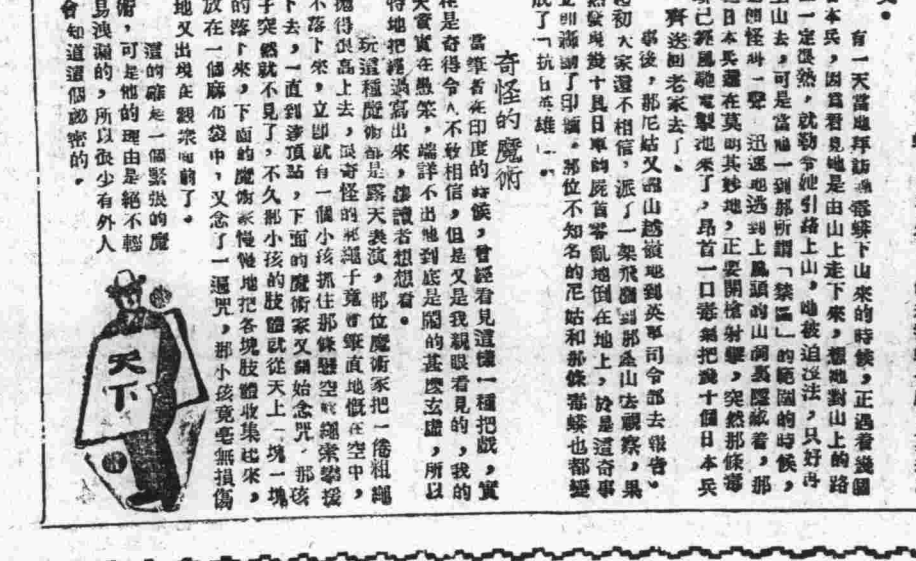 有一天當她拜訪毒蟒下山來的時候，正遇着幾個
日本兵，因爲看見她是由山上走下來，想她對山上的路
一定很熟，就勒令她引路上山，她被迫沒法，只好再
上山去，可是當她一到那所謂「禁區」的範圍的時候，
怪叫一聲，迅速地逃到上風頭的山洞裏隱藏着，那
日本兵還在莫明其妙地，正要開槍射擊，突然那條毒
已經風馳電掣地來了，昂首一口毒氣把幾十個日本兵
齊送回老家去了。
事後，那尼姑又爬山越嶺地到英軍司令部去報告。
起初大家還不相信，派了一架飛機到那座山去視察，果
然發現幾十具日軍的屍首零亂地倒在地上，於是這奇事
立即滿了印緬。那位不知名的尼姑和那條毒蟒也都變
成了「抗日英雄」。
奇怪的魔術
當筆者在印度的時候，曾經看見這樣一種把戲，實
在是奇得令人不敢相信，但是又是我親眼看見的，我的
天資實在愚笨，端詳不出牠到底是鬧的甚麼玄虛，所以
特地把經過寫出來，讓讀者想想看。
玩這種魔術都是露天表演，那位魔術家把一捲粗繩
擲得很高上去，很奇怪的那繩子竟會筆直地懸在空中，
不落下來，立即就有一個小孩抓住那條懸空的繩索攀援
上去，一直到達頂點，下面的魔術家又開始念咒，那孩
子突然就不見了，不久那小孩的肢體就從天上一塊一塊
的落下來，下面的魔術家慢慢地把各塊肢體收集起來，
放在一個麻布袋中，又念了一遍咒，那小孩竟毫無損傷
地又出現在觀衆面前了。
這的確是一個緊張的魔
術，可是他的理由是絕不輕
易洩漏的，所以很少有外人
會知道這個祕密的。
天下